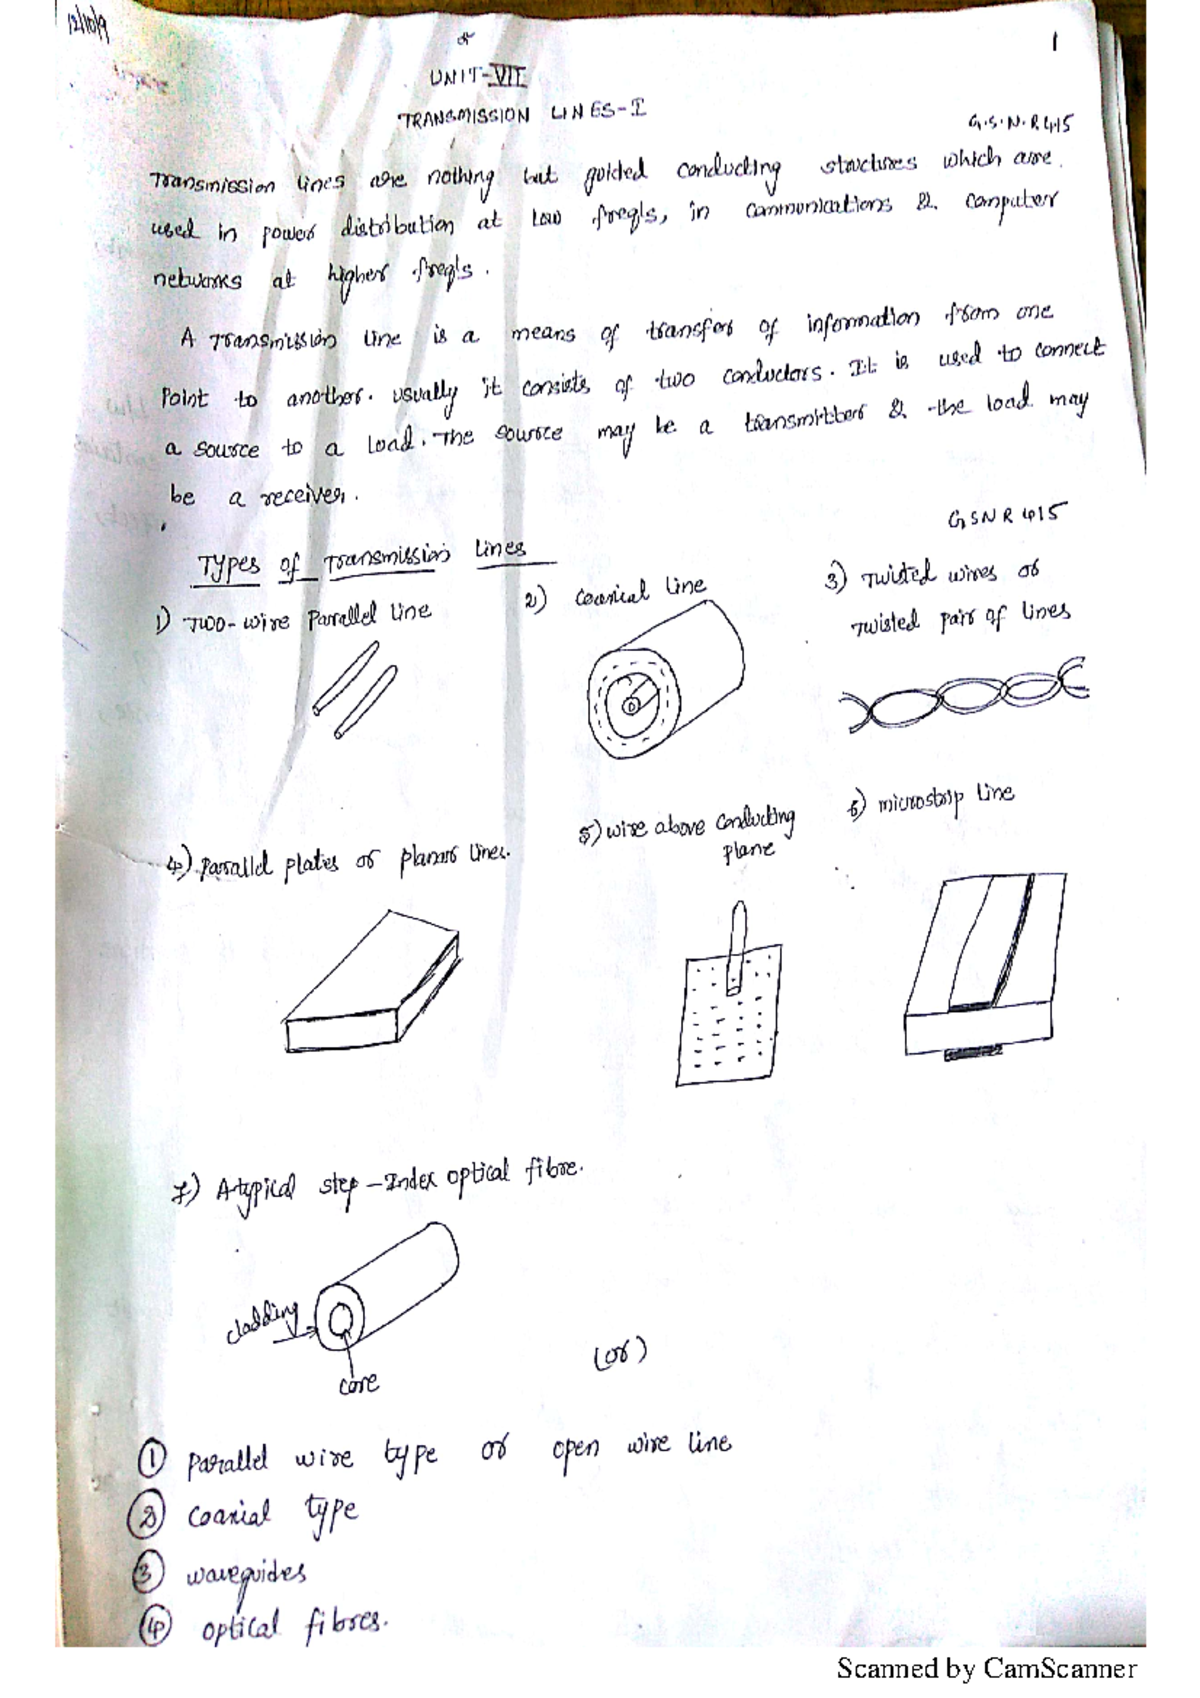 12/10/9
1
UNIT-VII
TRANSMISSION LINES-I
G.S.N.R415
Transmission lines are nothing but guided conducting structures which are
used in power distribution at low freq's, in communications & computer
networks at higher freq's.
A Transmission line is a means of transfer of information from one
Point to another. usually it consists of two conductors. It is used to connect
a source to a load. The source may be a transmitter & the load may
be a receiver.
GSNR 415
Types of Transmission Lines
1) Two-wire Parallel Line
2) Coaxial Line
3) Twisted wires or
Twisted pair of lines
4) Parallel plates or planar lines.
5) wire above conducting
plane
6) microstrip line
7) A typical step-Index optical fibre.
cladding
core
(or)
① Parallel wire type or open wire line
② coaxial type
③ waveguides
④ optical fibres.
Scanned by CamScanner